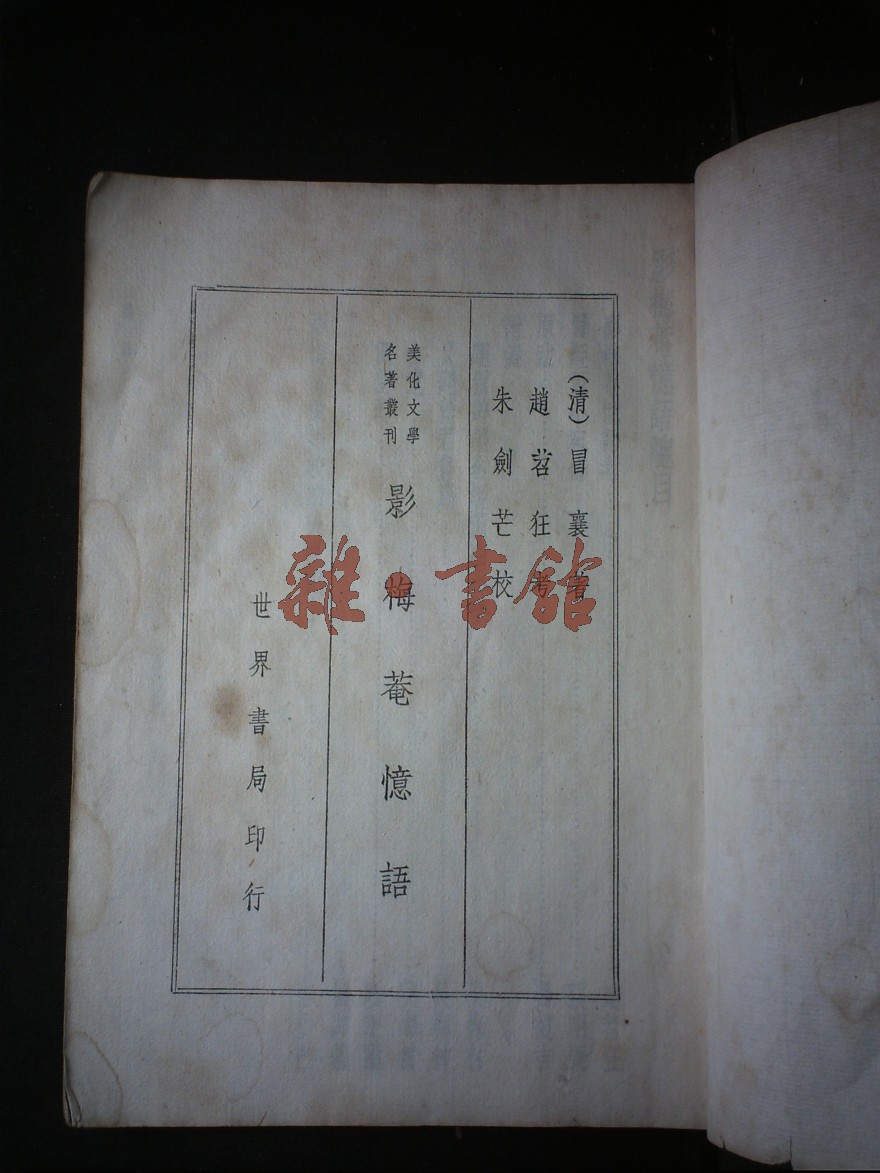 (清)冒襄著
趙苕狂考
朱劍芒校
美化文學
名著叢刊
影梅菴憶語
世界書局印行
雜·書館